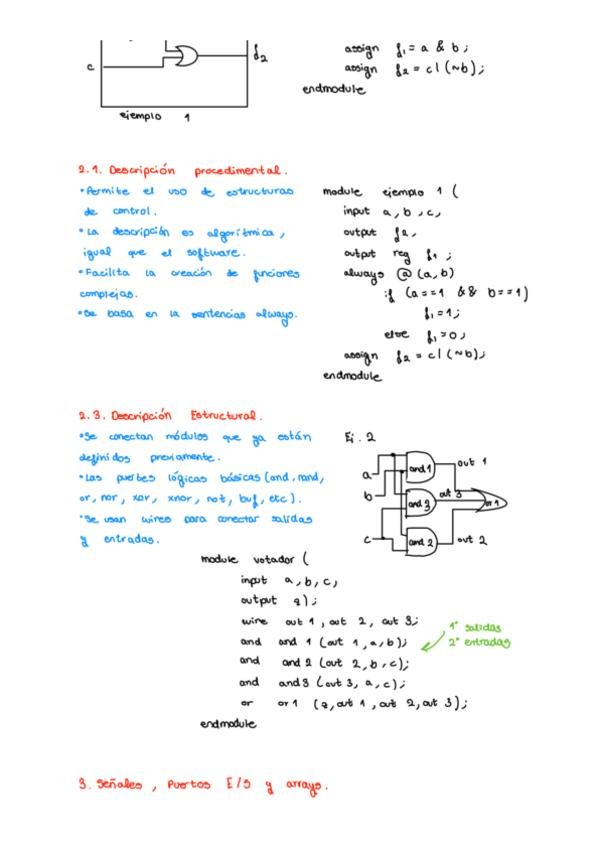 c
f2
assign f1 = a & b;
assign f2 = c | (~b);
endmodule
ejemplo 1
2.1. Descripción procedimental.
• Permite el uso de estructuras
de control.
• La descripción es algorítmica,
igual que el software.
• Facilita la creación de funciones
complejas.
• Se basa en la sentencias always.
module ejemplo 1 (
input a, b, c,
output f2,
output reg f1 ;
always @ (a, b)
if (a==1 && b==1)
f1 = 1;
else f1 = 0;
assign f2 = c | (~b);
endmodule
2.3. Descripción Estructural.
• Se conectan módulos que ya están
definidos previamente.
• Las puertas lógicas básicas (and, nand,
or, nor, xor, xnor, not, buf, etc).
• Se usan wires para conectar salidas
y entradas.
Ej. 2
a
b
c
and 1
and 3
and 2
out 1
out 3
out 2
or 1
module votador (
input a, b, c,
output z);
wire out 1, out 2, out 3;
and and 1 (out 1, a, b);
and and 2 (out 2, b, c);
and and 3 (out 3, a, c);
or or 1 (z, out 1, out 2, out 3);
endmodule
1º salidas
2º entradas
3. Señales, Puertos E/S y arrays.